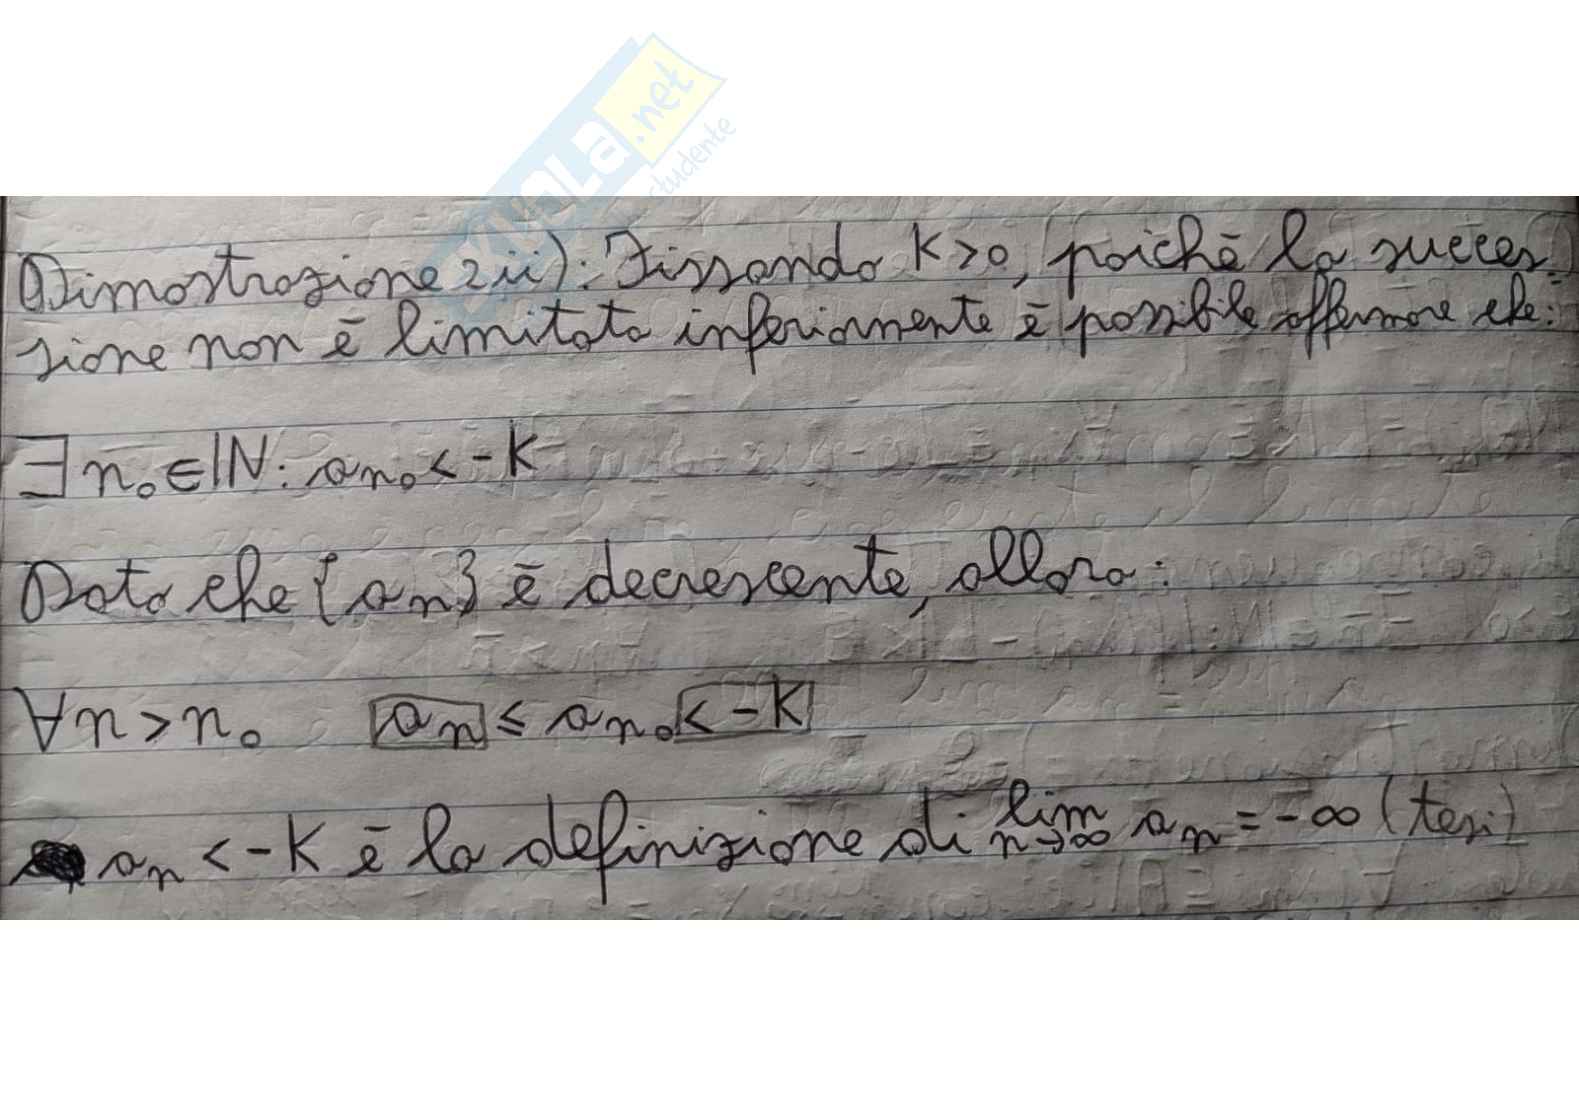 SKUOLA.net
studente
Dimostrazione 2ii): Fissando K>0, poiché la succes-
sione non è limitata inferiormente è possibile affermare che:
∃ n₀ ∈ ℕ: aₙ₀ < -K
Dato che {aₙ} è decrescente, allora:
∀n > n₀ aₙ ≤ aₙ₀ < -K
aₙ < -K è la definizione di lim n→∞ aₙ = -∞ (tesi)